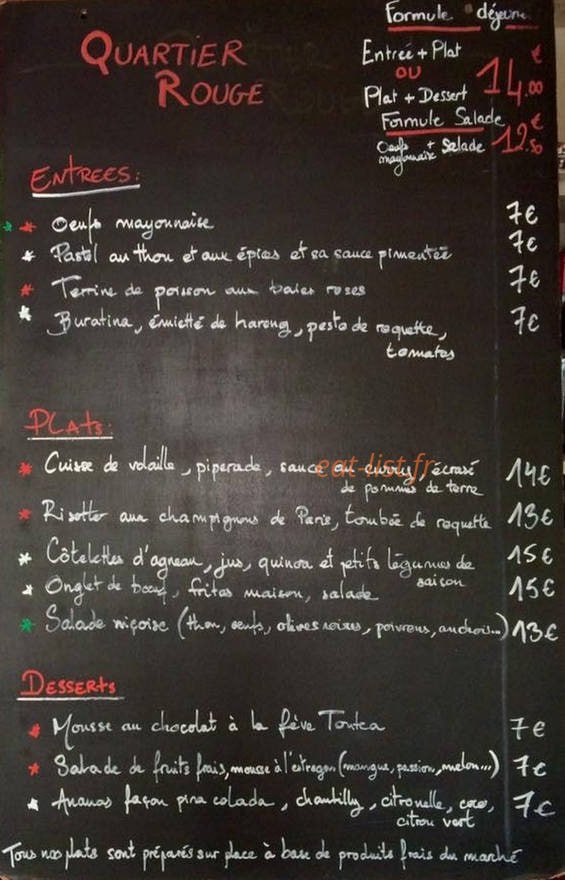 Formule déjeuner
QUARTIER
ROUGE
Entrée + Plat
OU
Plat + Dessert
14.00 €
Formule Salade
Oeufs mayonnaise + Salade 12.50 €
ENTREES:
* * Oeufs mayonnaise 7€
* Pastel au thon et aux épices et sa sauce pimentée 7€
* Terrine de poisson aux baies roses 7€
* Buratina, émietté de hareng, pesto de roquette, 7€
tomates
PLATS:
* Cuisse de volaille, piperade, sauce au curry, écrasé 14€
de pommes de terre
eat-list.fr
* Risotto aux champignons de Paris, tombée de roquette 13€
* Côtelettes d'agneau, jus, quinoa et petits légumes de 15€
saison
* Onglet de boeuf, frites maison, salade 15€
* Salade niçoise (thon, oeufs, olives noires, poivrons, anchois...) 13€
DESSERTS
* Mousse au chocolat à la fève Tonka 7€
* Salade de fruits frais, mousse à l'estragon (mangue, passion, melon...) 7€
* Ananas façon pina colada, chantilly, citronelle, coco, 7€
citron vert
Tous nos plats sont préparés sur place à base de produits frais du marché